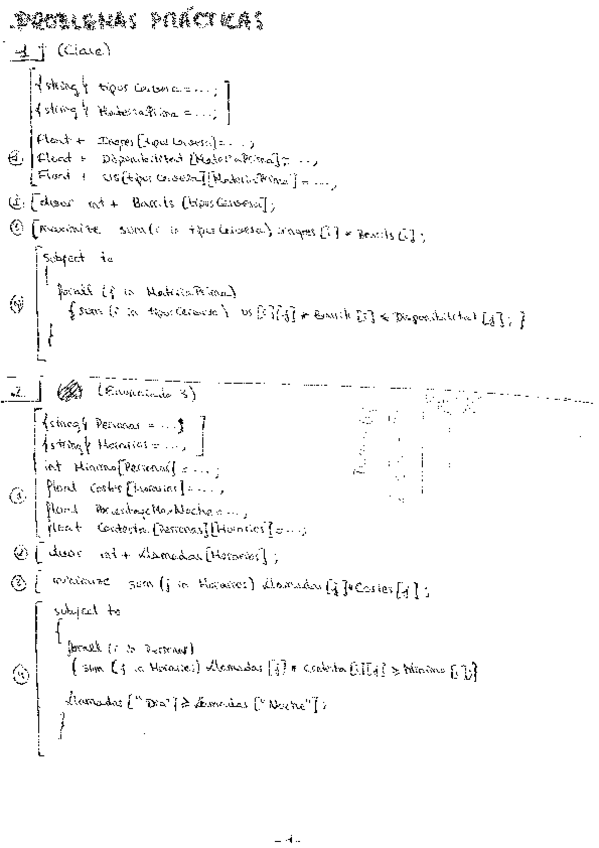 PROBLEMAS PRÁCTICAS
1 (Clase)
{string} tiposCerveza = ...;
{string} MateriaPrima = ...;
float + Ingres[tiposCerveza] = ...;
① Float + Disponibilitat [MateriaPrima] = ...;
Float + US[tiposCerveza][MateriaPrima] = ...;
② dvar int + Barrils [tiposCerveza];
③ maximize sum(i in tiposCerveza) ingres[i] * Barrils[i];
subject to
{
forall (j in MateriaPrima)
④ {sum (i in tiposCerveza) us[i][j] * Barrils[i] ≤ Disponibilitat[j]; }
}
2 (Enunciado 3)
{string} Personas = ...;
{string} Horarios = ...;
int Minimo[Personas] = ...;
① float Costes [Horarios] = ...;
float PorcentageMaxNoche = ...;
float Contesta [Personas][Horarios] = ...;
② dvar int + Llamadas [Horarios];
③ minimize sum(j in Horarios) Llamadas[j]*Costes[j];
subject to
{
forall (i in Personas)
④ { sum (j in Horarios) Llamadas[j] * Contesta[i][j] ≥ Minimo[i];}
Llamadas["Dia"] ≥ Llamadas["Noche"];
}
-1-